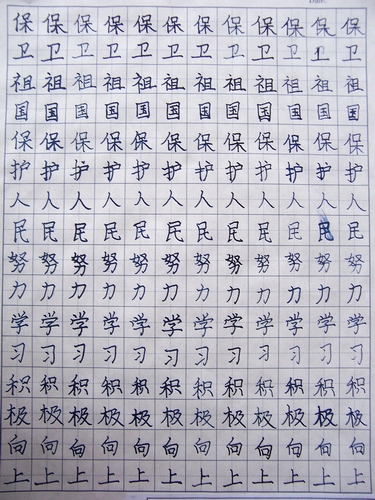 保保保保保保保保保保保保
卫卫卫卫卫卫卫卫卫卫卫卫
祖祖祖祖祖祖祖祖祖祖祖祖
国国国国国国国国国国国国
保保保保保保保保保保保保
护护护护护护护护护护护护
人人人人人人人人人人人人
民民民民民民民民民民民民
努努努努努努努努努努努努
力力力力力力力力力力力力
学学学学学学学学学学学学
习习习习习习习习习习习习
积积积积积积积积积积积积
极极极极极极极极极极极极
向向向向向向向向向向向向
上上上上上上上上上上上上